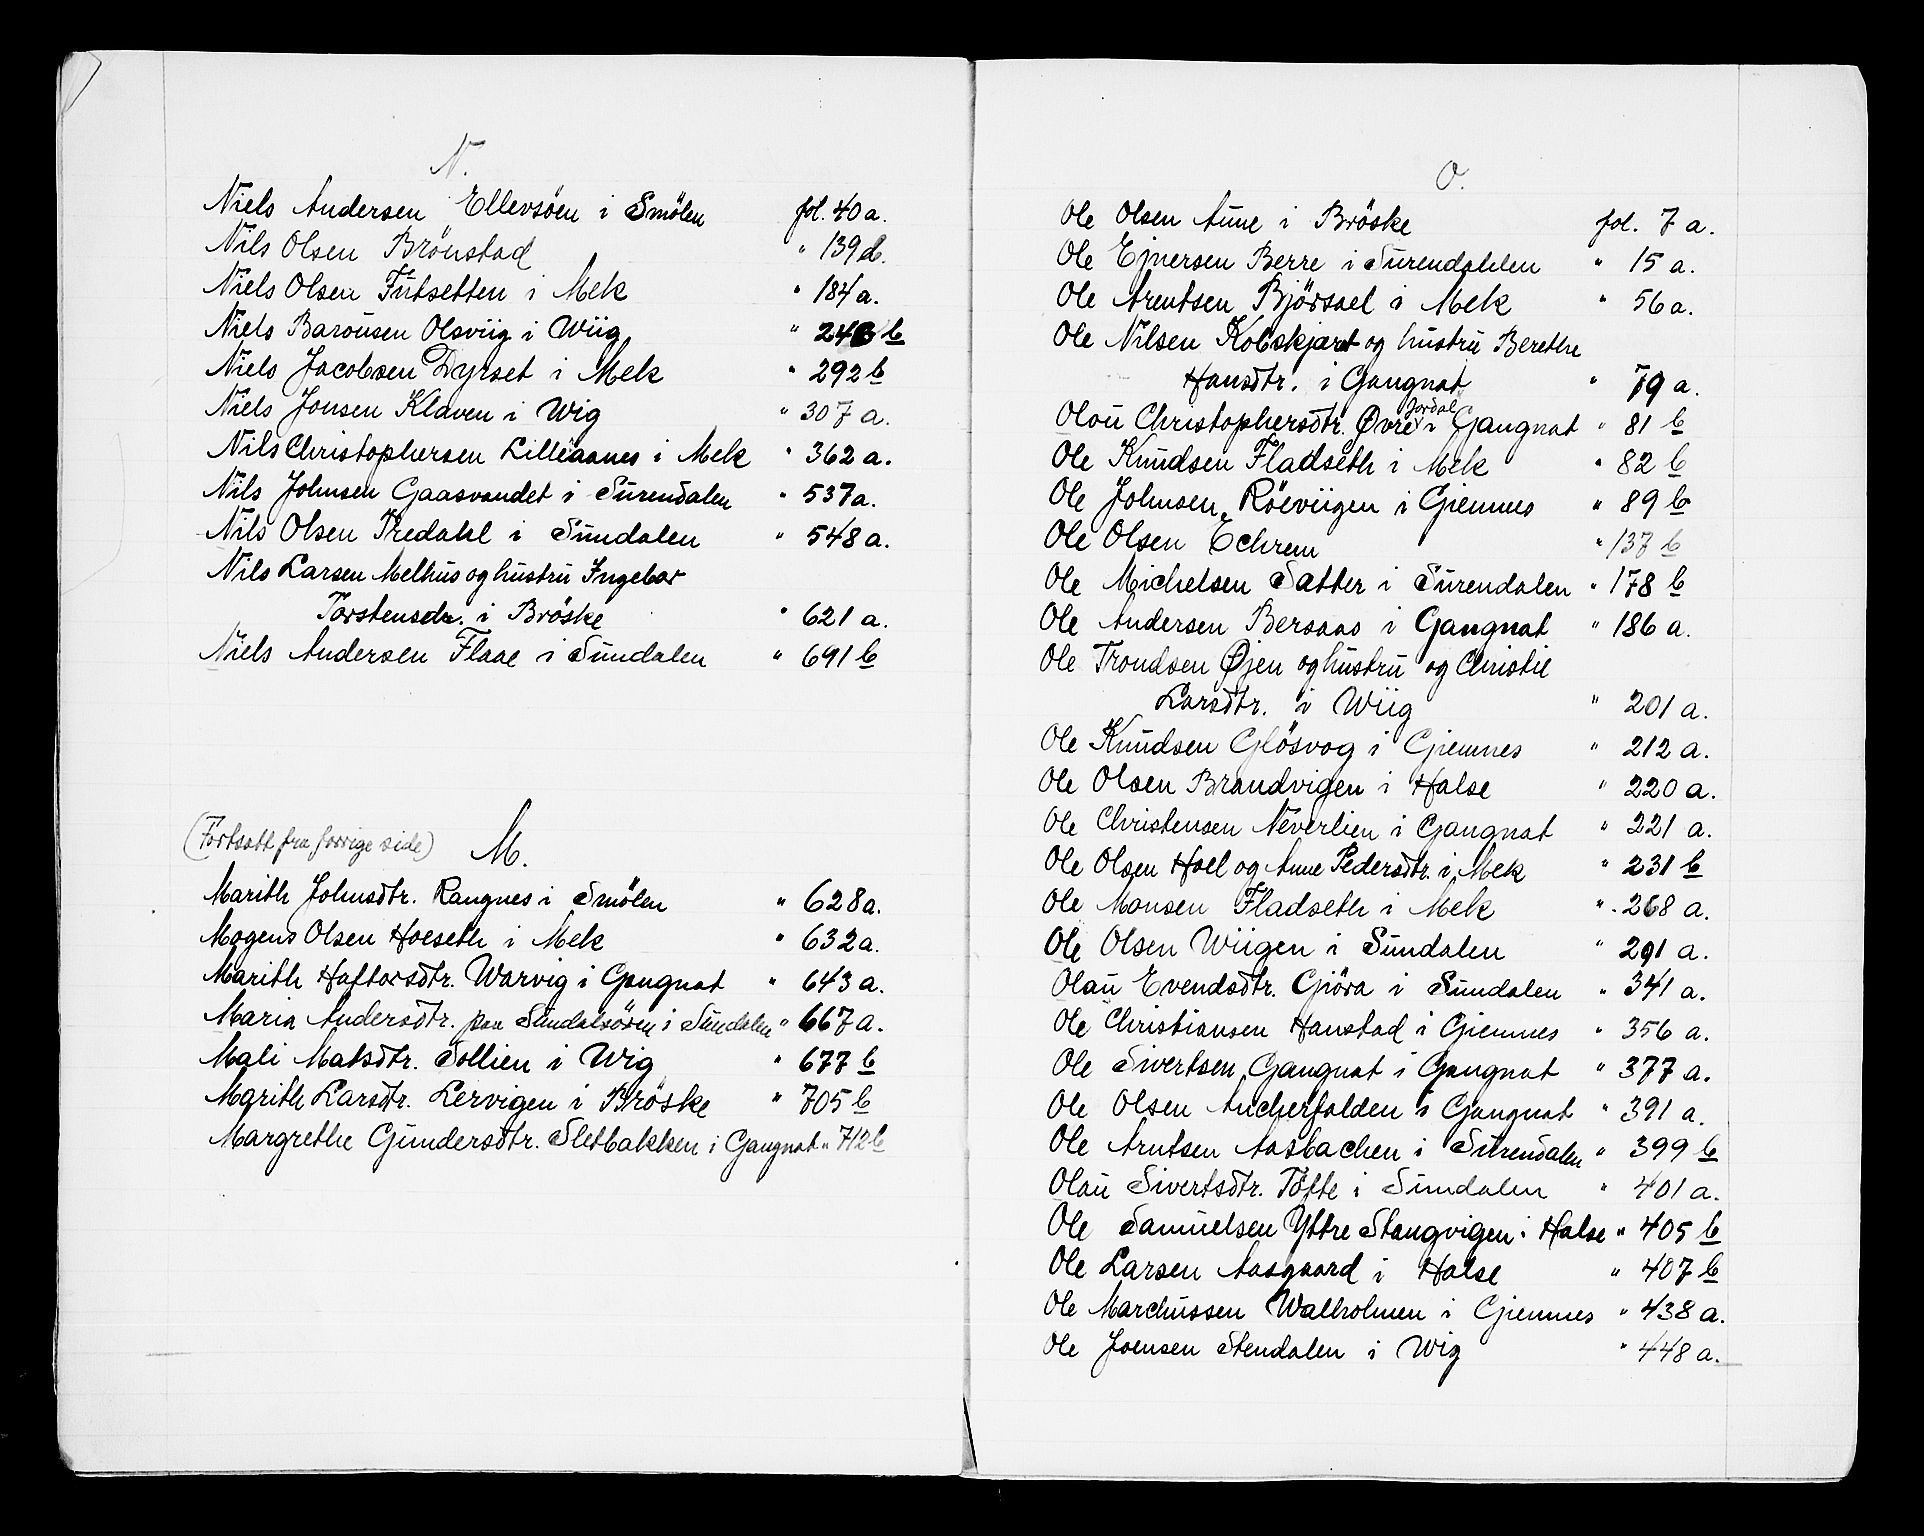 N.
Niels Andersen Ellevsöen i Smölen fol. 40 a.
Nils Olsen Brönstad " 139 b.
Niels Olsen Fütsetten i Mek " 184 a.
Niels Baroüsen Olsviig i Wiig " b
Niels Jacobsen Dyrset i Mek " 292 b
Niels Jonsen Klaven i Wig " 307 a.
Nils Christophersen Lilleaanes i Mek " 362 a.
Nils Johnsen Gaasvandet i Sürendalen " 537 a.
Nils Olsen Tredahl i Sündalen " 548 a.
Nils Larsen Melhus og hustrü Ingebor
Torstensdr. i Bröske " 621 a.
Niels Andersen Flaae i Sündalen " 691 b
(Fortsatt fra forrige side) M.
Marith Johnsdtr. Rangnes i Smölen " 628 a.
Mogens Olsen Hoeseth i Mek " 632 a.
Marith Haftorsdtr. Warvig i Gangnat " 643 a.
Maria Andersdtr. paa Sündalsören i Sündalen " 667 a.
Mali Matsdtr. Sollien i Wig " 677 b
Marith Larsdtr. Lervigen i Bröske " 705 b
Margrethe Gündersdtr. Sletbakken i Gangnat " 712 b
O.
Ole Olsen Aune i Bröske fol. 7 a.
Ole Ejnersen Berre i Sürendalen " 15 a.
Ole Arentsen Björsael i Mek " 56 a.
Ole Nilsen Kolskjæret og hustrü Berethe
Hansdtr. i Gangnat " 79 a.
Olaü Christophersdtr. Øvre Jordal i Gangnat " 81 b
Ole Knüdsen Fladseth i Mek " 82 b
Ole Johnsen Röeviigen i Giemnes " 89 b
Ole Olsen Echrem " 137 b
Ole Michelsen Satter i Sürendalen " 178 b
Ole Andersen Bersaas i Gangnat " 186 a.
Ole Trondsen Øjen og hustrü og Christie
Larsdtr. i Wiig " 201 a.
Ole Knüdsen Glösvog i Giemnes " 212 a.
Ole Olsen Brandvigen i Halse " 220 a.
Ole Christensen Neverlien i Gangnat " 221 a.
Ole Olsen Hoel og Anne Pedersdtr. i Mek " 231 b
Ole Monsen Fladseth i Mek " 268 a.
Ole Olsen Wiigen i Sündalen " 291 a.
Olaü Evendsdtr. Giöra i Sündalen " 341 a.
Ole Christiansen Hanstad i Giemnes " 356 a.
Ole Sivertsen Gangnat i Gangnat " 377 a.
Ole Olsen Ancherfalden i Gangnat " 391 a.
Ole Arntsen Aasbachen i Sürendalen " 399 b
Olaü Sivertsdtr. Töfte i Sündalen " 401 a.
Ole Samüelsen Yttre Stangvigen i Halse " 405 b
Ole Larsen Aasgaard i Halse " 407 b
Ole Marchüssen Walholmen i Giemnes " 438 a.
Ole Joensen Stendalen i Wig " 448 a.